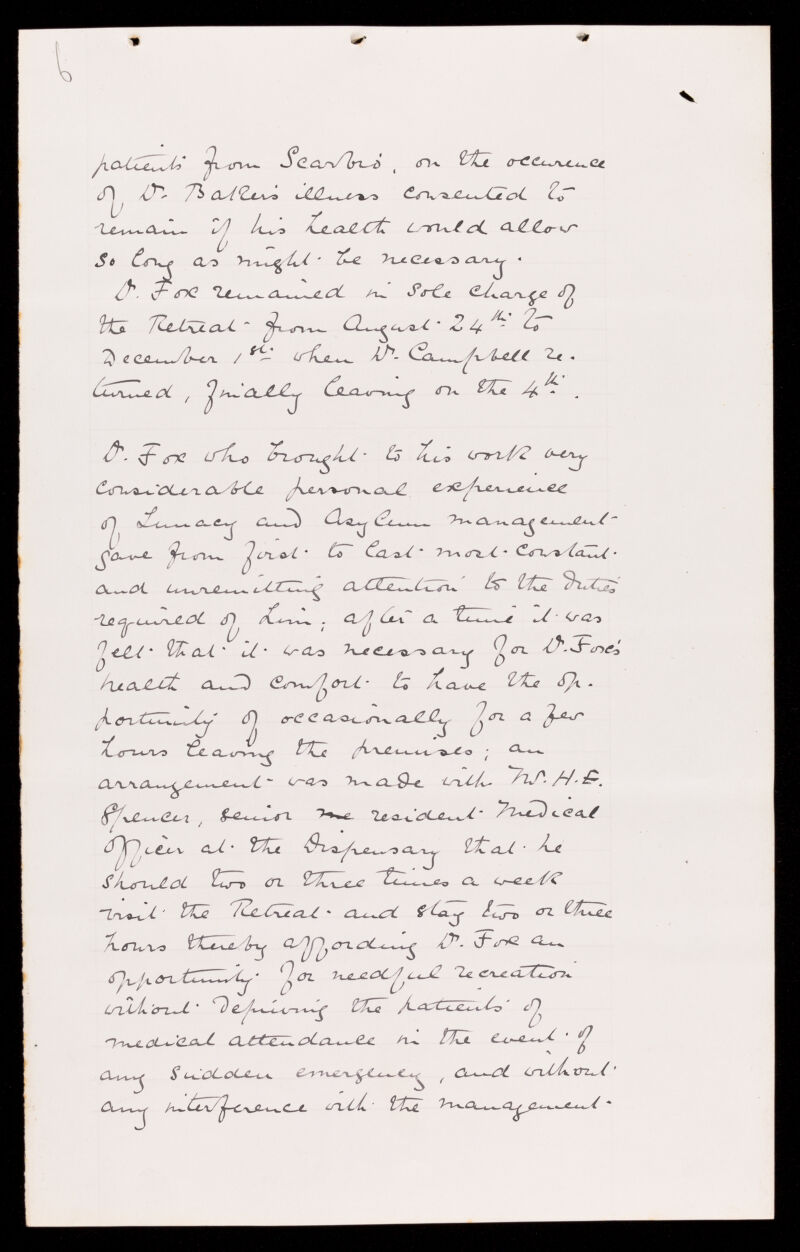 6
patients from Scarbro', on the occurence
of Dr. Baker's illness consented to
remain if his health would allow
so long as might be necessary.
Dr. Fox remained in sole charge of
the Retreat from August 24th to
December 1st when Dr. Campbell re-
turned, finally leaving on the 4th.
Dr. Fox who brought to his work very
considerable personal experience
of Lunacy and Asylum management
gave from first to last most constant
and unremitting attention to the duties
required of him; after a time it was
felt that it was necessary for Dr. Fox's
health and comfort to have the op-
portunity of occasionally for a few
hours leaving the premises; an
arrangement was made with W. H. E.
Spencer, senior me resident Medical
officer at the Dispensary that he
should two or three times a week
visit the Retreat and stay two or three
hours thereby affording Dr. Fox an
opportunity for needful recreation
without depriving the patients of
medical attendance in the event of
any sudden emergency, and without
any interference with the management